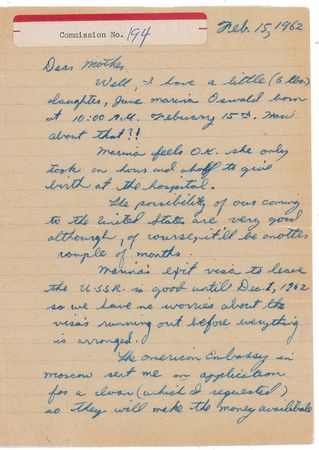 Commission No. 194
Feb. 15, 1962
Dear Mother,
Well, I have a little (6 lbs.)
daughter, June Marina Oswald born
at 10:00 A.M. February 15th. How
about that?!
Marina feels O.K. she only
took an hour and a half to give
birth at the hospital.
The possibility of our coming
to the United States are very good
although, of course, it'll be another
couple of months.
Marina's exit visa to leave
the USSR. is good until Dec. 1, 1962
so we have no worries about the
visa's running out before everything
is arranged.
The American Embassy in
Moscow sent me an application
for a loan (which I requested)
so they will make the money available